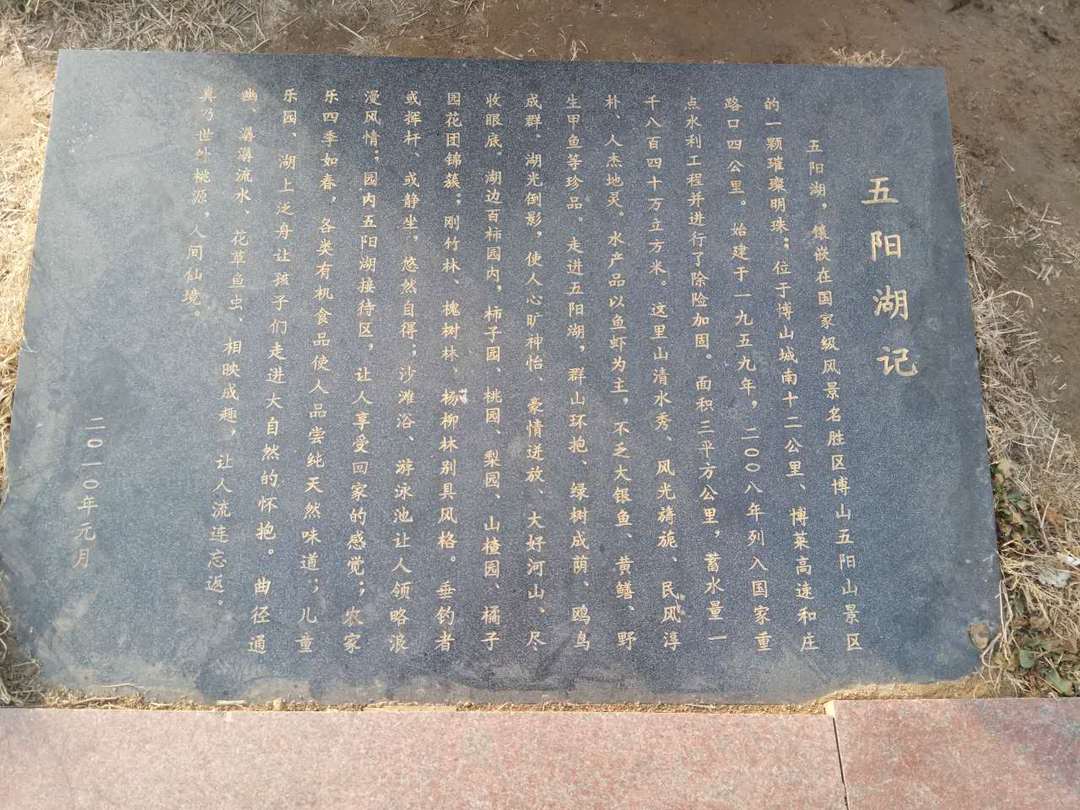 五阳湖记
五阳湖，镶嵌在国家级风景名胜区博山五阳山景区
的一颗璀璨明珠；位于博山城南十二公里、博莱高速和庄
路口四公里。始建于一九五九年，二〇〇八年列入国家重
点水利工程并进行了除险加固。面积三平方公里，蓄水量一
千八百四十万立方米。这里山清水秀、风光旖旎、民风淳
朴、人杰地灵。水产品以鱼虾为主，不乏大银鱼、黄鳝、野
生甲鱼等珍品。走进五阳湖，群山环抱、绿树成荫、鸥鸟
成群、湖光倒影，使人心旷神怡、豪情迸放、大好河山、尽
收眼底。湖边百柿园内，柿子园、桃园、梨园、山楂园、橘子
园花团锦簇；刚竹林、槐树林、杨柳林别具风格。垂钓者
或挥杆、或静坐，悠然自得；沙滩浴、游泳池让人领略浪
漫风情；园内五阳湖接待区，让人享受回家的感觉；农家
乐四季如春，各类有机食品使人品尝纯天然味道；儿童
乐园、湖上泛舟让孩子们走进大自然的怀抱。曲径通
幽、潺潺流水、花草鱼虫、相映成趣，让人流连忘返。
真乃世外桃源，人间仙境。
二〇一〇年元月